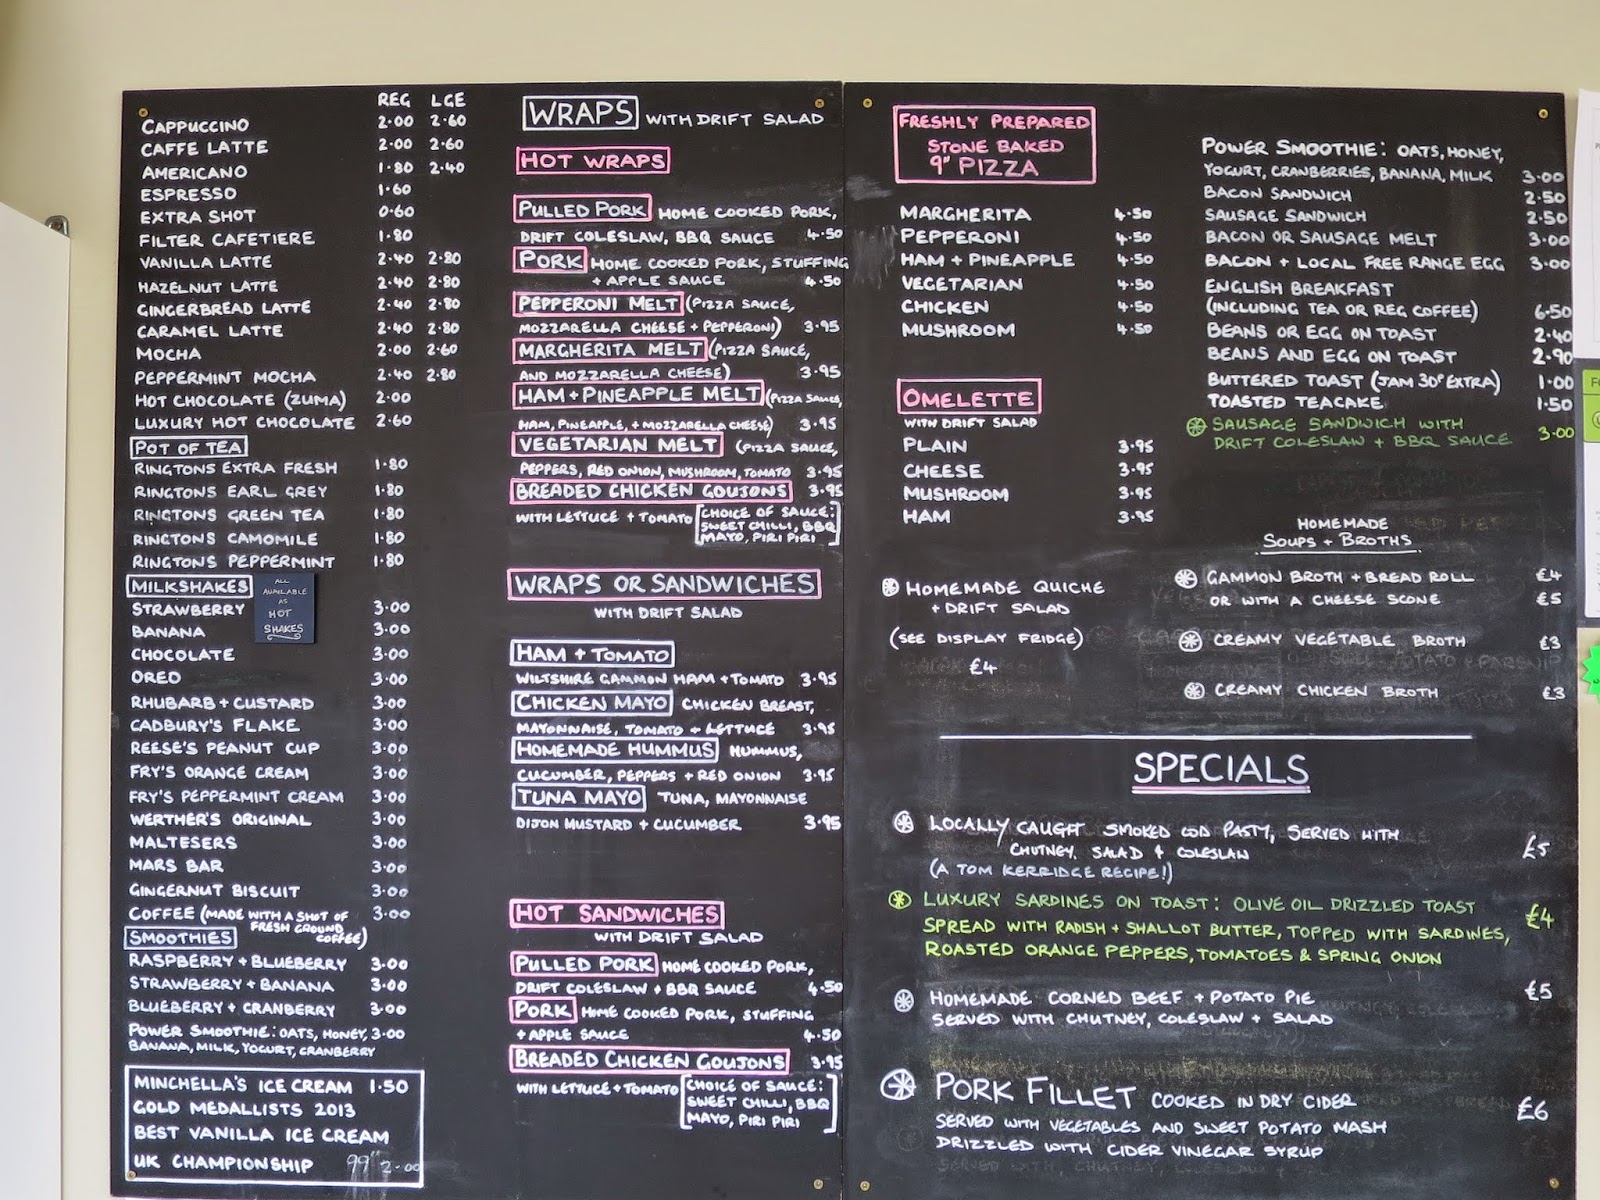 REG LGE
CAPPUCCINO 2·00 2·60
CAFFE LATTE 2·00 2·60
AMERICANO 1·80 2·40
ESPRESSO 1·60
EXTRA SHOT 0·60
FILTER CAFETIERE 1·80
VANILLA LATTE 2·40 2·80
HAZELNUT LATTE 2·40 2·80
GINGERBREAD LATTE 2·40 2·80
CARAMEL LATTE 2·40 2·80
MOCHA 2·00 2·60
PEPPERMINT MOCHA 2·40 2·80
HOT CHOCOLATE (ZUMA) 2·00
LUXURY HOT CHOCOLATE 2·60
POT OF TEA
RINGTONS EXTRA FRESH 1·80
RINGTONS EARL GREY 1·80
RINGTONS GREEN TEA 1·80
RINGTONS CAMOMILE 1·80
RINGTONS PEPPERMINT 1·80
MILKSHAKES
ALL
AVAILABLE
AS
HOT
SHAKES
STRAWBERRY 3·00
BANANA 3·00
CHOCOLATE 3·00
OREO 3·00
RHUBARB + CUSTARD 3·00
CADBURY'S FLAKE 3·00
REESE'S PEANUT CUP 3·00
FRY'S ORANGE CREAM 3·00
FRY'S PEPPERMINT CREAM 3·00
WERTHER'S ORIGINAL 3·00
MALTESERS 3·00
MARS BAR 3·00
GINGERNUT BISCUIT 3·00
COFFEE (MADE WITH A SHOT OF 3·00
FRESH GROUND
COFFEE)
SMOOTHIES
RASPBERRY + BLUEBERRY 3·00
STRAWBERRY + BANANA 3·00
BLUEBERRY + CRANBERRY 3·00
POWER SMOOTHIE: OATS, HONEY, 3·00
BANANA, MILK, YOGURT, CRANBERRY
MINCHELLA'S ICE CREAM 1·50
GOLD MEDALLISTS 2013
BEST VANILLA ICE CREAM
UK CHAMPIONSHIP 99" 2·00
WRAPS WITH DRIFT SALAD
HOT WRAPS
PULLED PORK HOME COOKED PORK,
DRIFT COLESLAW, BBQ SAUCE 4·50
PORK HOME COOKED PORK, STUFFING
+ APPLE SAUCE 4·50
PEPPERONI MELT (PIZZA SAUCE,
MOZZARELLA CHEESE + PEPPERONI) 3·95
MARGHERITA MELT (PIZZA SAUCE,
AND MOZZARELLA CHEESE) 3·95
HAM + PINEAPPLE MELT (PIZZA SAUCE,
HAM, PINEAPPLE, + MOZZARELLA CHEESE) 3·95
VEGETARIAN MELT (PIZZA SAUCE,
PEPPERS, RED ONION, MUSHROOM, TOMATO 3·95
BREADED CHICKEN GOUJONS 3·95
WITH LETTUCE + TOMATO [CHOICE OF SAUCE:
SWEET CHILLI, BBQ
MAYO, PIRI PIRI]
WRAPS OR SANDWICHES
WITH DRIFT SALAD
HAM + TOMATO
WILTSHIRE GAMMON HAM + TOMATO 3·95
CHICKEN MAYO CHICKEN BREAST,
MAYONNAISE, TOMATO + LETTUCE 3·95
HOMEMADE HUMMUS HUMMUS,
CUCUMBER, PEPPERS + RED ONION 3·95
TUNA MAYO TUNA, MAYONNAISE
DIJON MUSTARD + CUCUMBER 3·95
HOT SANDWICHES
WITH DRIFT SALAD
PULLED PORK HOME COOKED PORK,
DRIFT COLESLAW + BBQ SAUCE 4·50
PORK HOME COOKED PORK, STUFFING
+ APPLE SAUCE 4·50
BREADED CHICKEN GOUJONS 3·95
WITH LETTUCE + TOMATO [CHOICE OF SAUCE:
SWEET CHILLI, BBQ
MAYO, PIRI PIRI]
FRESHLY PREPARED
STONE BAKED
9" PIZZA
MARGHERITA 4·50
PEPPERONI 4·50
HAM + PINEAPPLE 4·50
VEGETARIAN 4·50
CHICKEN 4·50
MUSHROOM 4·50
OMELETTE
WITH DRIFT SALAD
PLAIN 3·95
CHEESE 3·95
MUSHROOM 3·95
HAM 3·95
HOMEMADE QUICHE
+ DRIFT SALAD
(SEE DISPLAY FRIDGE)
£4
POWER SMOOTHIE: OATS, HONEY,
YOGURT, CRANBERRIES, BANANA, MILK 3·00
BACON SANDWICH 2·50
SAUSAGE SANDWICH 2·50
BACON OR SAUSAGE MELT 3·00
BACON + LOCAL FREE RANGE EGG 3·00
ENGLISH BREAKFAST
(INCLUDING TEA OR REG COFFEE) 6·50
BEANS OR EGG ON TOAST 2·40
BEANS AND EGG ON TOAST 2·90
BUTTERED TOAST (JAM 30P EXTRA) 1·00
TOASTED TEACAKE 1·50
SAUSAGE SANDWICH WITH
DRIFT COLESLAW + BBQ SAUCE 3·00
HOMEMADE
SOUPS + BROTHS
GAMMON BROTH + BREAD ROLL £4
OR WITH A CHEESE SCONE £5
CREAMY VEGETABLE BROTH £3
CREAMY CHICKEN BROTH £3
SPECIALS
LOCALLY CAUGHT SMOKED COD PASTY, SERVED WITH
CHUTNEY, SALAD & COLESLAW £5
(A TOM KERRIDGE RECIPE!)
LUXURY SARDINES ON TOAST: OLIVE OIL DRIZZLED TOAST £4
SPREAD WITH RADISH + SHALLOT BUTTER, TOPPED WITH SARDINES,
ROASTED ORANGE PEPPERS, TOMATOES & SPRING ONION
HOMEMADE CORNED BEEF + POTATO PIE £5
SERVED WITH CHUTNEY, COLESLAW + SALAD
PORK FILLET COOKED IN DRY CIDER £6
SERVED WITH VEGETABLES AND SWEET POTATO MASH
DRIZZLED WITH CIDER VINEGAR SYRUP